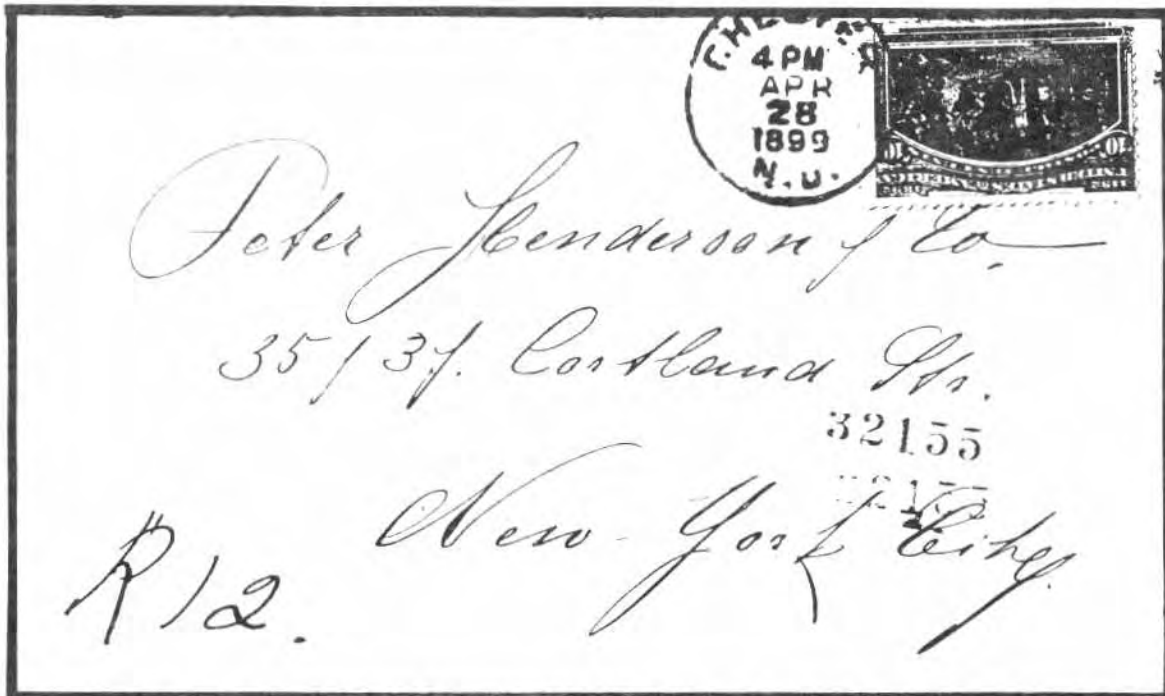 4 PM
APR
28
1899
N.J.
10 10
Peter Henderson & Co.
35/37. Cortland Str.
32155
New York City.
R 12.